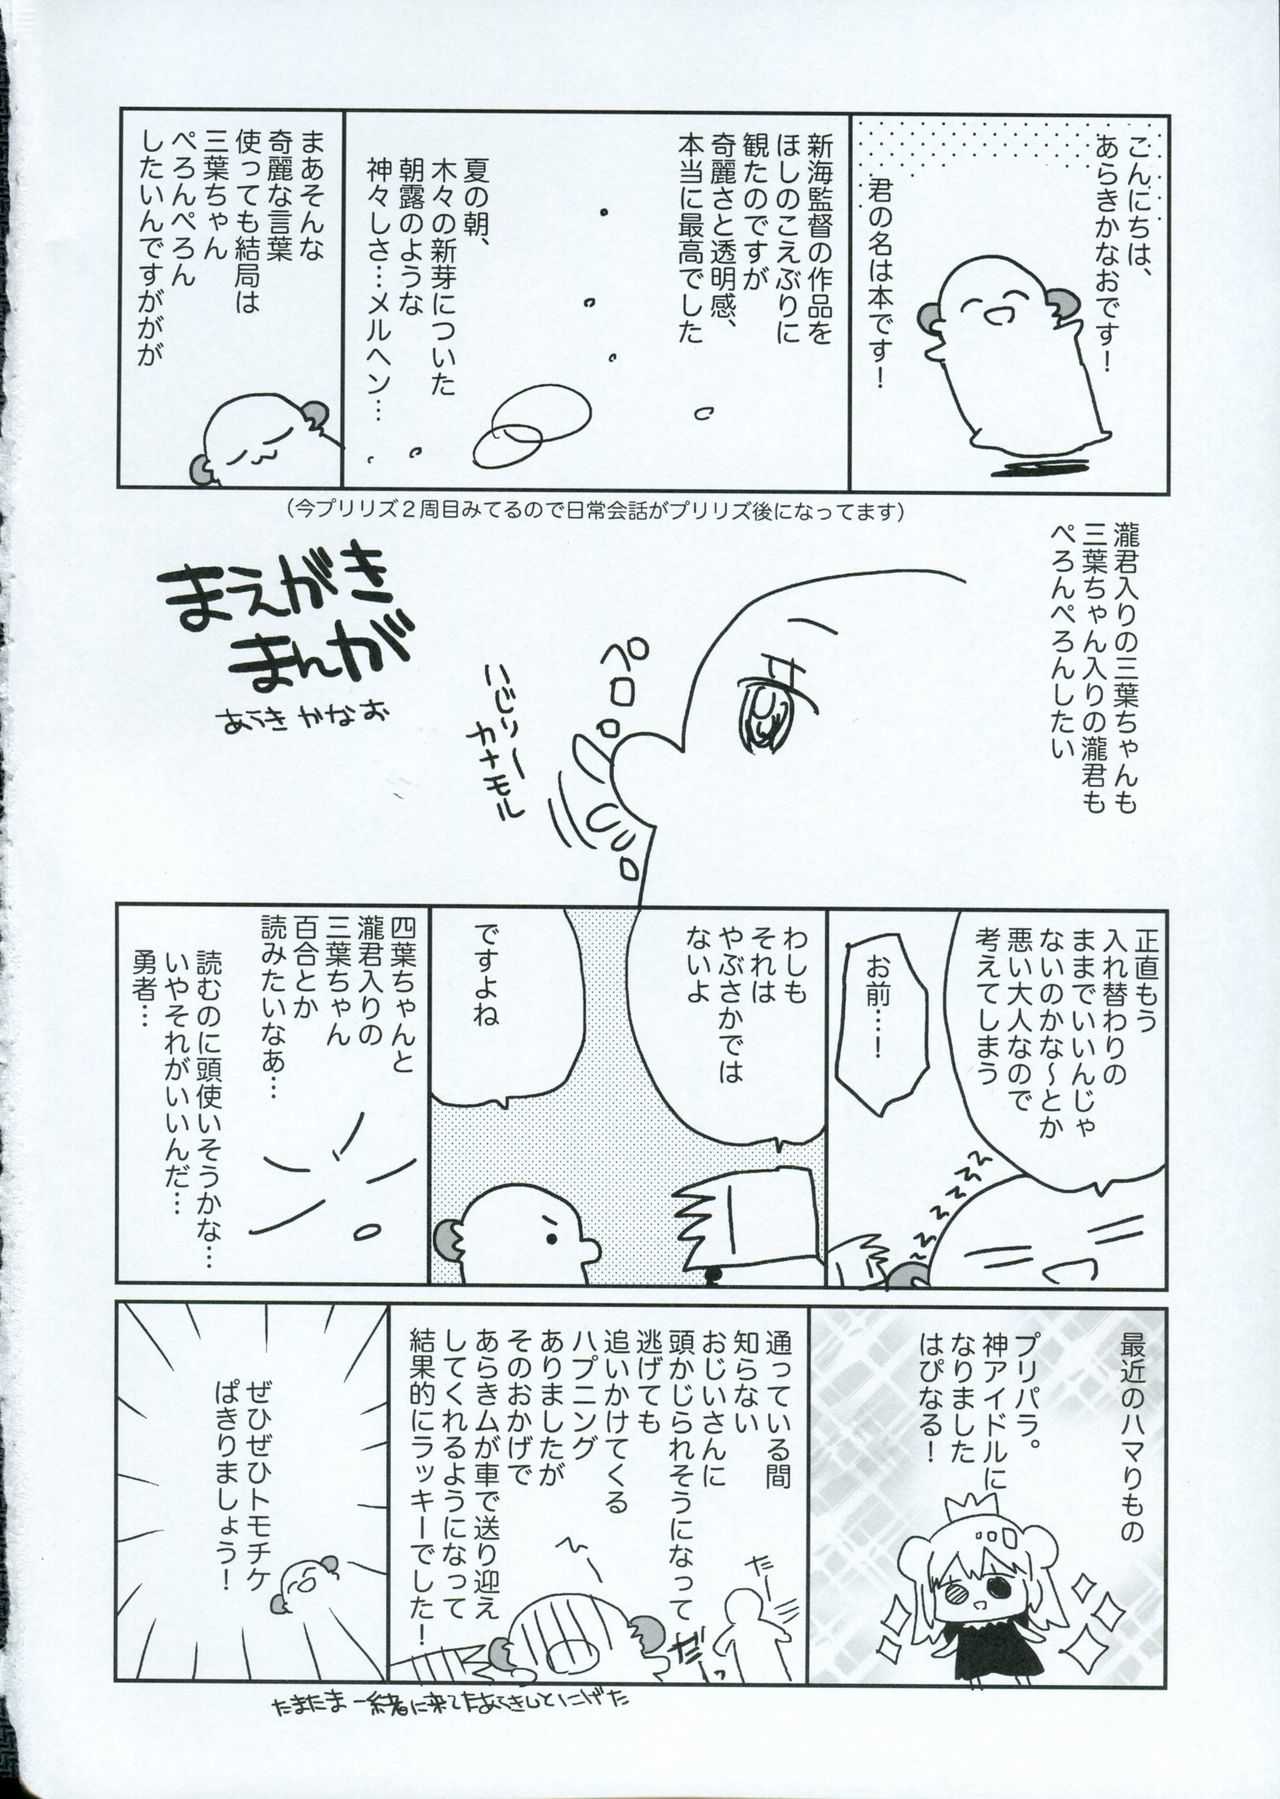 こんにちは、
あらきかなおです!
君の名は本です!
新海監督の作品を
ほしのこえぶりに
観たのですが
奇麗さと透明感、
本当に最高でした
夏の朝、
木々の新芽についた
朝露のような
神々しさ…メルヘン…
まあそんな
奇麗な言葉
使っても結局は
三葉ちゃん
ぺろんぺろん
したいんですががが
(今プリリズ2周目みてるので日常会話がプリリズ後になってます)
まえがき
まんが
あらきかなお
瀧君入りの三葉ちゃんも
三葉ちゃん入りの瀧君も
ぺろんぺろんしたい
ペロ
はじリー
カナモル
正直もう
入れ替わりの
ままでいいんじゃ
ないのかな〜とか
悪い大人なので
考えてしまう
お前…!
わしも
それは
やぶさかでは
ないよ
ですよね
四葉ちゃんと
瀧君入りの
三葉ちゃん
百合とか
読みたいなあ…
読むのに頭使いそうかな…
いやそれがいいんだ…
勇者…
最近のハマりもの
プリパラ。
神アイドルに
なりました
はぴなる!
通っている間
知らない
おじいさんに
頭かじられそうになって
逃げても
追いかけてくる
ハプニング
ありましたが
そのおかげで
あらきムが車で送り迎え
してくれるようになって
結果的にラッキーでした!
だー
だっ
たまたま一緒に来てたあらきしとにげた
ぜひぜひトモチケ
ぱきりましょう!